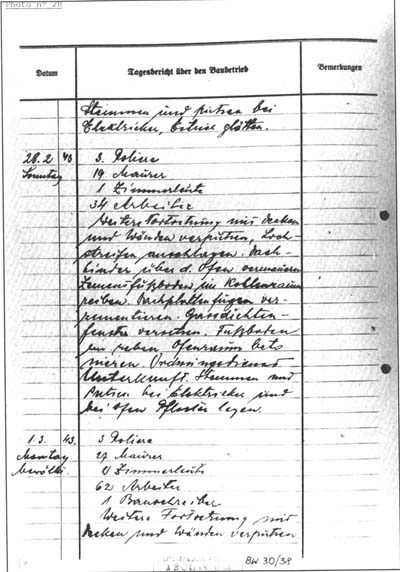 Photo n° 28
Datum Tagesbericht über den Baubetrieb Bemerkungen
Stemmen und putzen bei
Elektriker, Estrich glätten.
28.2. 43. 3. Poliere
Sonntag 19 Maurer
1 Zimmerleute
34 Arbeiter
Weitere Fortsetzung mit Decken
und Wänden verputzen, Loch-
streifen ausschlagen. Dach-
binder über d. Ofen vermauern
Zementfußboden im Kohlenraum
reiben. Dachplattenfugen ver-
zementieren. Gasdichten-
fenster versetzen. Fußboden
reiben. Ofenraum beto
nieren. Ordnungsdienst
Unterkunft. Stemmen und
Putzen bei Elektriker und
bei Ofen Pflaster legen.
1.3. 43. 3 Poliere
Montag 27 Maurer
bewölkt. Zimmerleute
62 Arbeiter
1 Bauschreiber
Weitere Fortsetzung mit
Decken und Wänden verputzen
BW 30/38